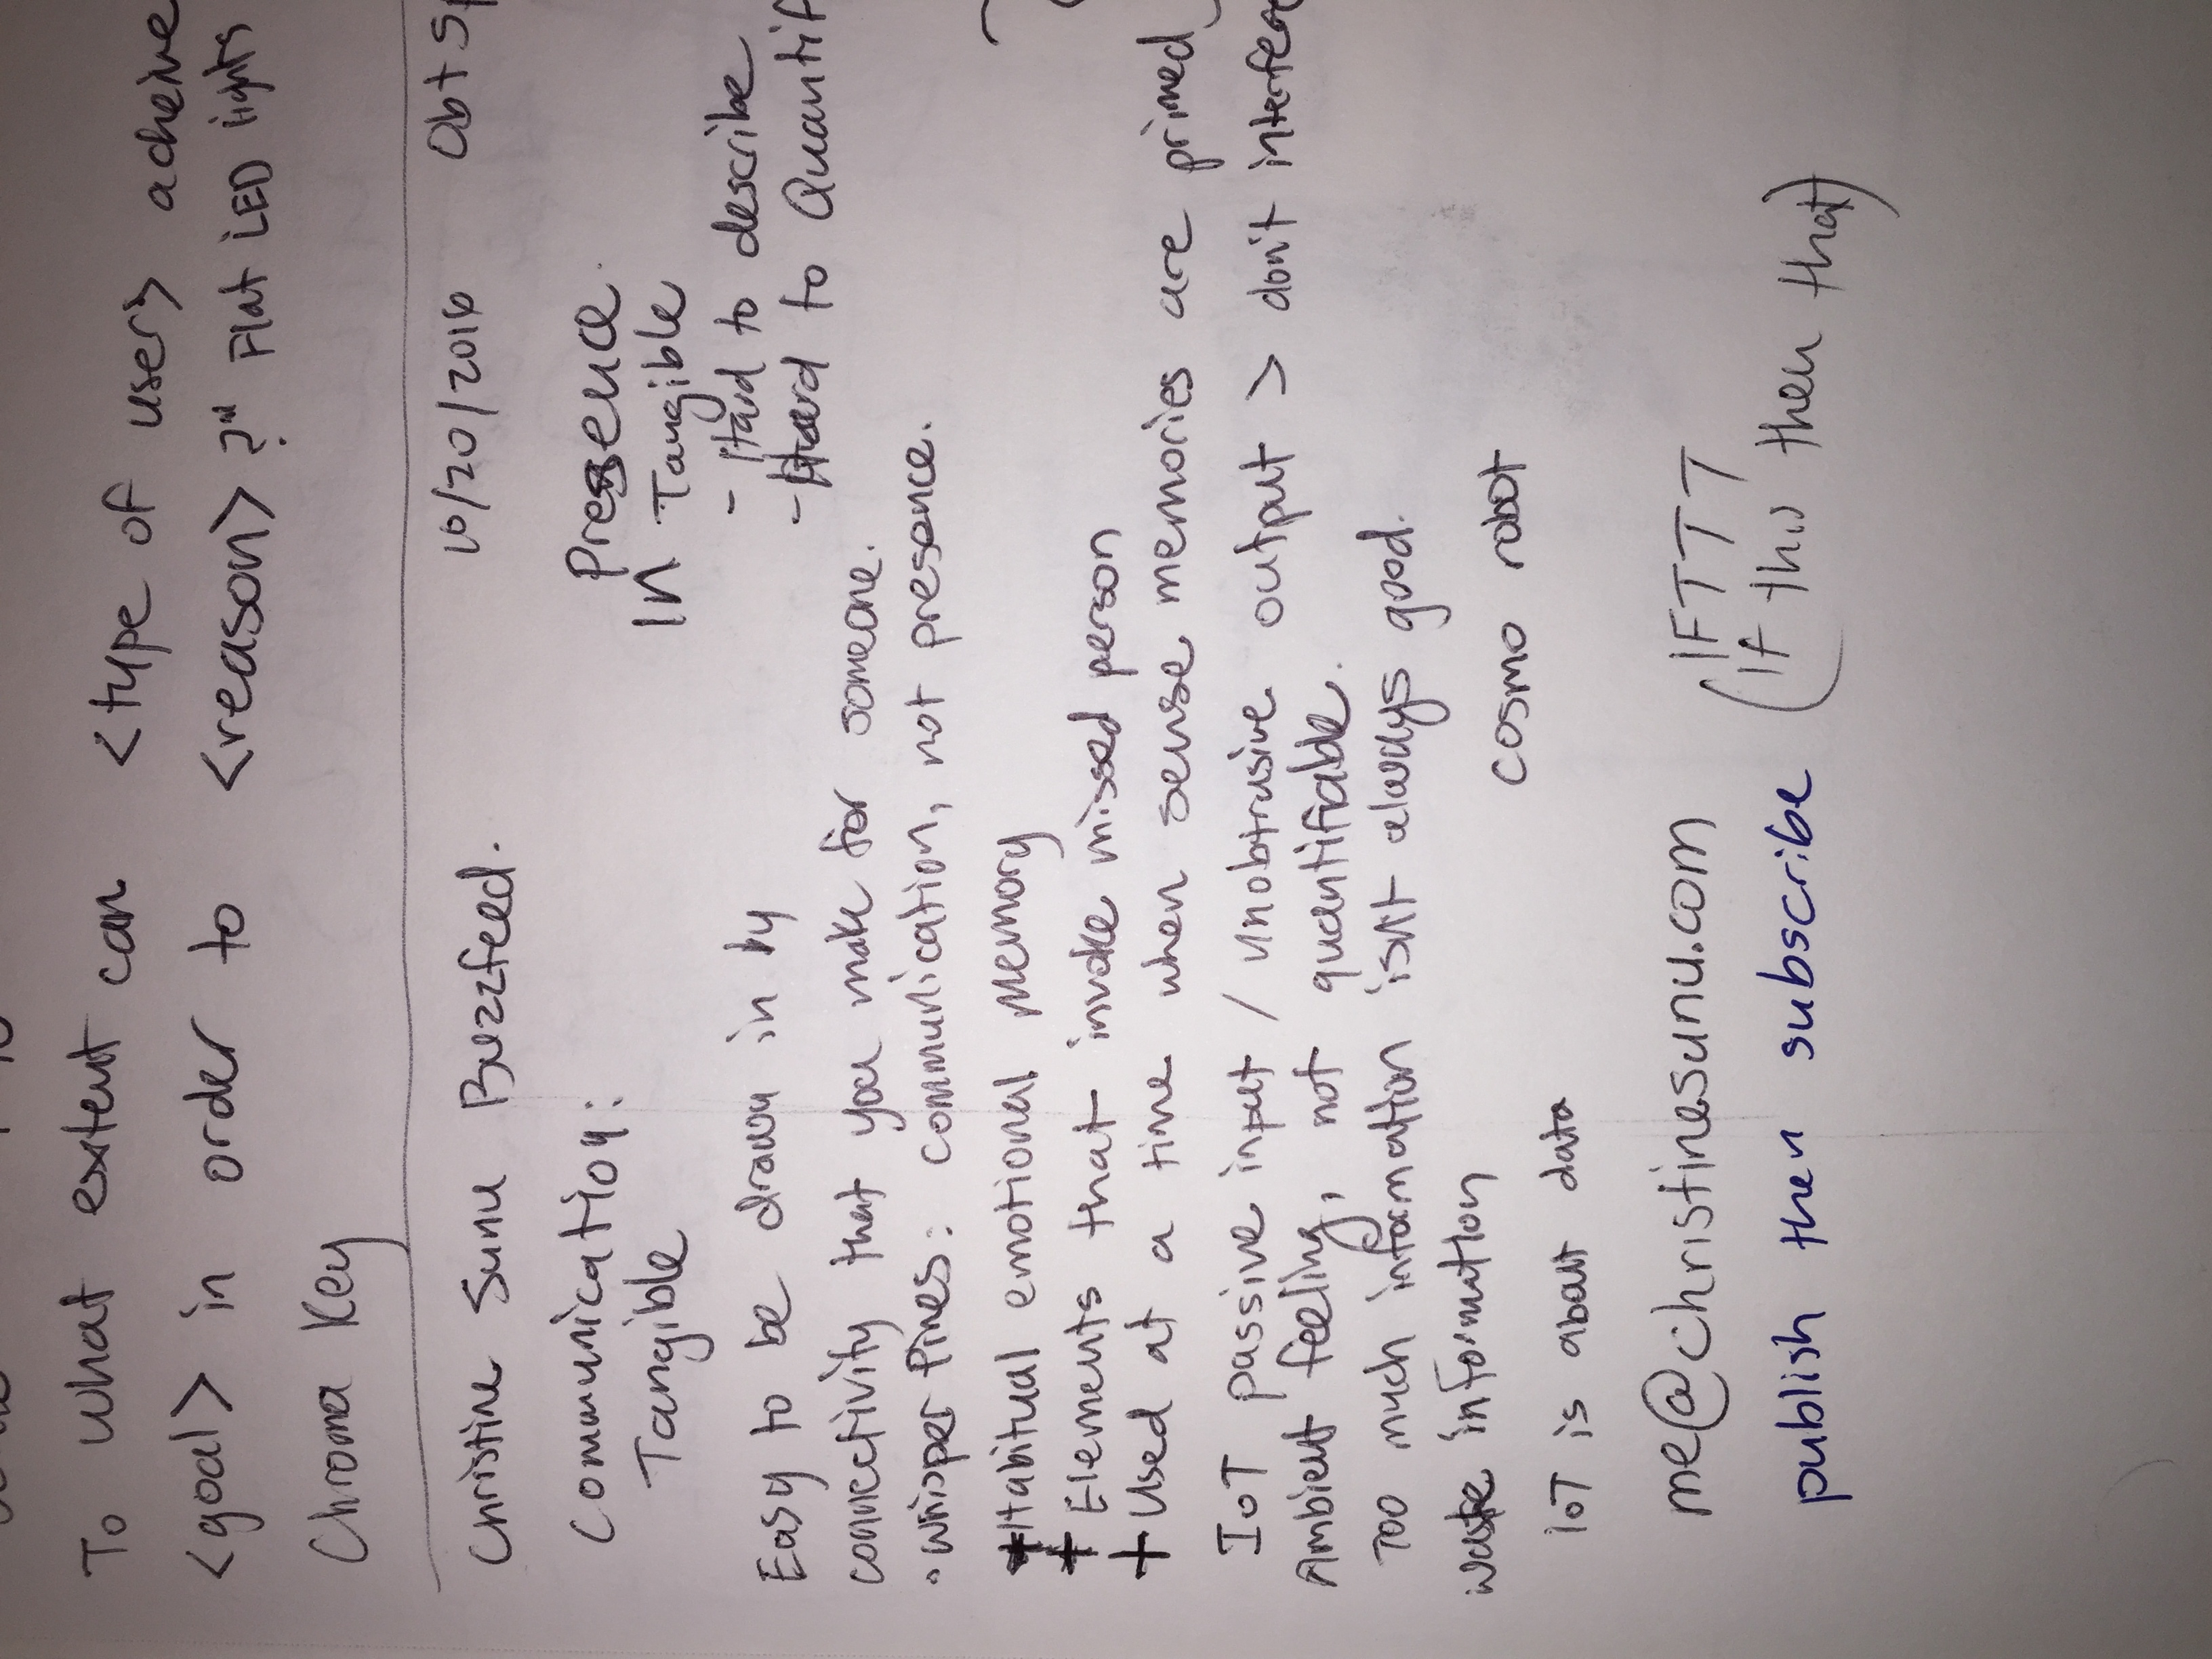 To what extent can <type of user> acheive
<goal> in order to <reason>?" Flat LED lights
Chroma Key
Christine Sunu Buzzfeed. 10/20/2016
Communication: Presence.
Tangible InTangible
- Hard to describe
Easy to be drawn in by
- Hard to Quantif
connectivity that you make for someone.
• Whisper Pines: communication, not presence.
+ Habitual emotional memory
+ Elements that invoke missed person
+ Used at a time when sense memories are primed
IoT passive input / unobtrusive output > don't interfere
Ambient feeling, not quantifiable.
Too much information isn't always good.
waste information
cosmo robot
IoT is about data
me@christinesunu.com IFTTT
publish then subscribe (If this then that)